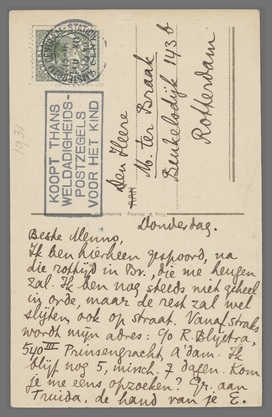 KOOPT THANS
WELDADIGHEIDS-
POSTZEGELS
VOOR HET KIND
1931
Den Heere
M. ter Braak
Beukelsdijk 143 b
Rotterdam
AAN
Donderdag.
Beste Menno,
Ik ben hierheen gespoord, na
die rottijd in Br., die me heugen
zal. Ik ben nog steeds niet geheel
in orde, maar de rest zal wel
slijten, ook op straat. Vanaf straks
wordt mijn adres: c/o R. Blijstra,
540 III Prinsengracht, A'dam. Ik
blijf nog 5, minch. 7 dagen. Kom
je me eens opzoeken? Gr. aan
Truida. de hand van je E.